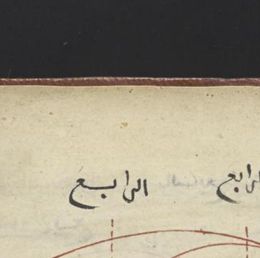 الرابع
الرابع